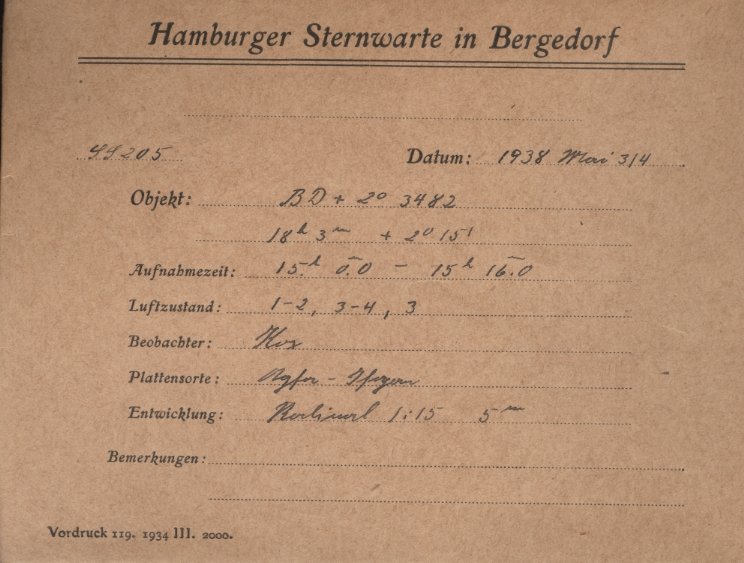 Hamburger Sternwarte in Bergedorf
Datum: 1938 Mai 3/4
Objekt: BD + 2° 3482
18h 3m + 2° 15'
Aufnahmezeit: 15h 0.0 - 15h 16.0
Luftzustand: 1-2, 3-4, 3
Beobachter:
Plattensorte: Agfa -
Entwicklung: Rodinal 1:15 5m
Bemerkungen:
Vordruck 119. 1934 III. 2000.